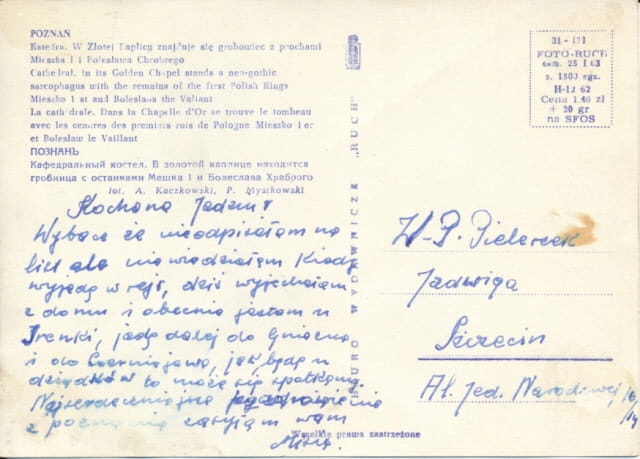 POZNAŃ
Katedra. W Złotej Kaplicy znajduje się grobowiec z prochami
Mieszka I i Bolesława Chrobrego
Cathedral. in its Golden Chapel stands a neo-gothic
sarcophagus with the remains of the first Polish Kings
Mieszko I st and Boleslaus the Valiant
La cathédrale. Dans la Chapelle d'Or se trouve le tombeau
avec les cendres des premiers rois de Pologne Mieszko I er
et Bolesław le Vaillant
ПОЗНАНЬ
Кафедральный костел. В золотой каплице находится
гробница с останками Мешка I и Болеслава Храброго
fot. A. Kaczkowski, P. Mystkowski
Kochana
Wybacz że nieodpisałam na
list ale nie wiedziałam kiedy
wyjadę w rejs, dziś wyjechałam
z domu i obecnie jestem u
Irenki, jadę dalej do Gniezna
i do Czerniejewa, jak będę u
dziadków to może się spotkamy.
Najserdeczniejsze pozdrowienia
z Poznania zasyłam wam
BIURO WYDAWNICZE „RUCH"
31-171
FOTO-RUCH
zam. 25 I 63
s. 1500 egz.
H-12 62
Cena 1.40 zł
+ 20 gr
na SFOS
W-P.
Jadwiga
Szczecin
Al. Jed. Narodowej
Wszelkie prawa zastrzeżone